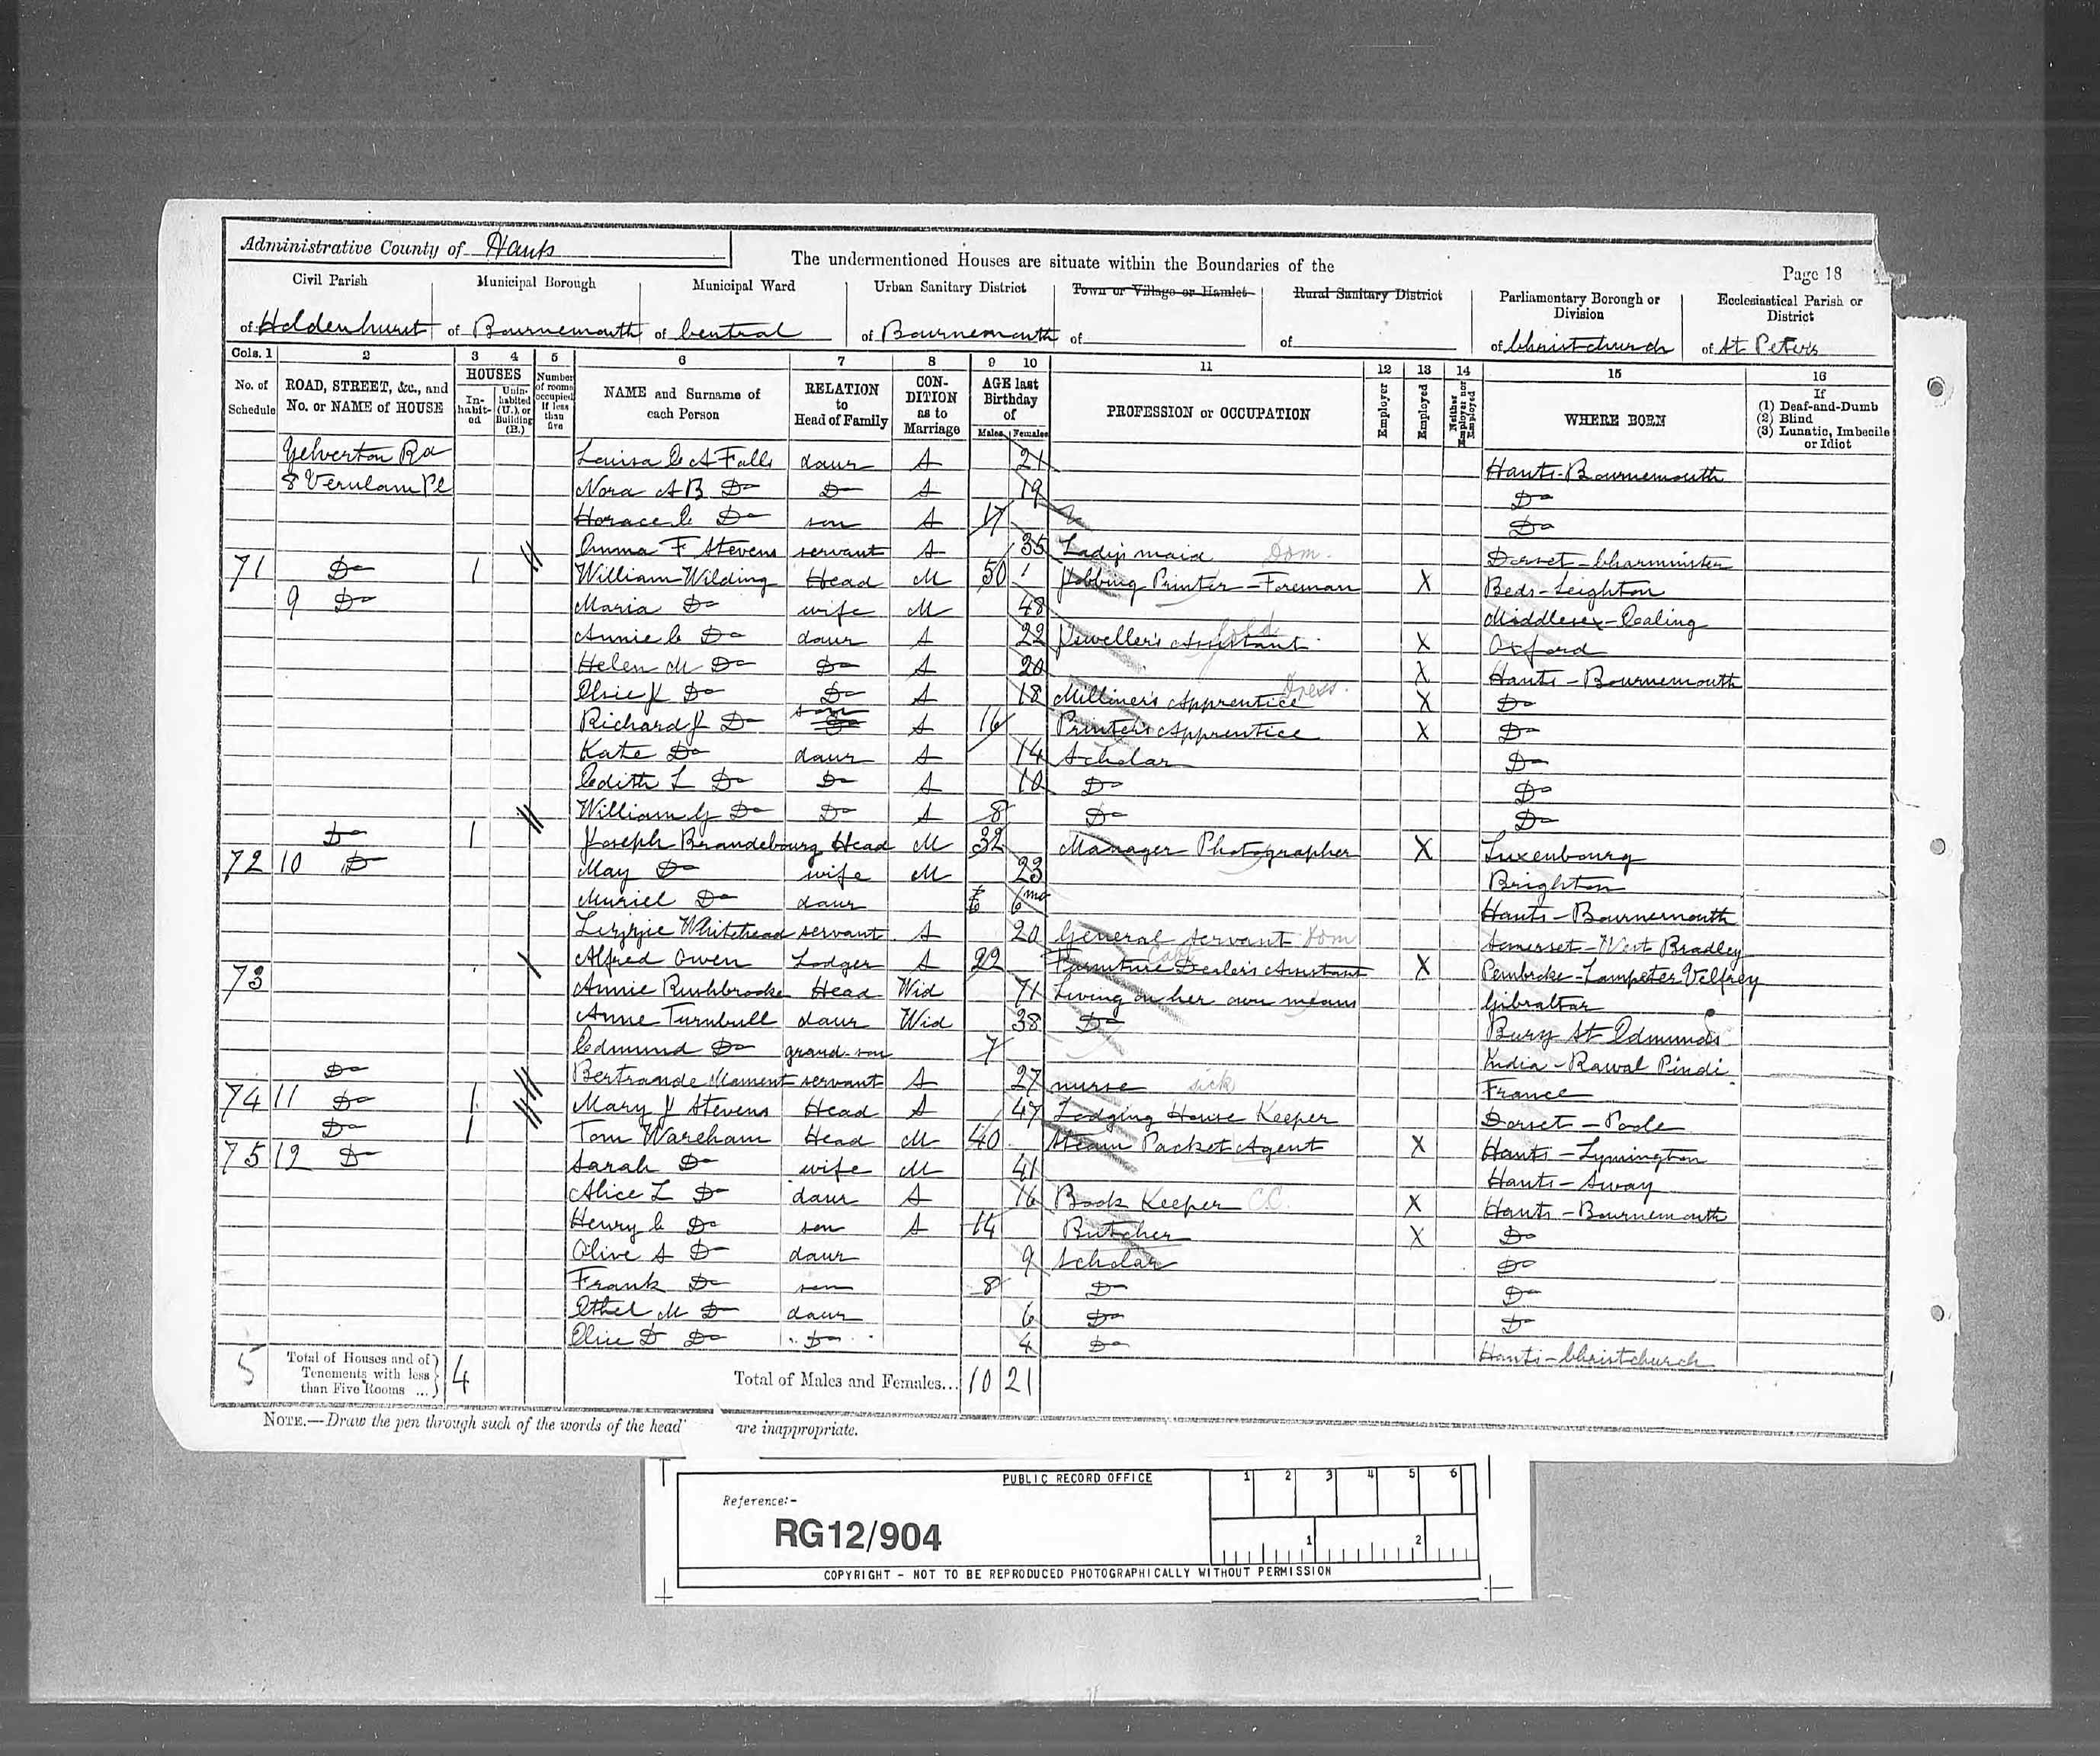 Administrative County of Hants
The undermentioned Houses are situate within the Boundaries of the
Page 18
Civil Parish Municipal Borough Municipal Ward Urban Sanitary District Town or Village or Hamlet Rural Sanitary District Parliamentary Borough or Division Ecclesiastical Parish or District
of Holdenhurst of Bournemouth of Central of Bournemouth of of of Christchurch of St Peter's
Cols. 1 2 3 4 5 6 7 8 9 10 11 12 13 14 15 16
No. of Schedule ROAD, STREET, &c., and No. or NAME of HOUSE HOUSES In-habit-ed Unin-habited (U.), or Building (B.) Number of rooms occupied if less than five NAME and Surname of each Person RELATION to Head of Family CON-DITION as to Marriage AGE last Birthday of Males Females PROFESSION or OCCUPATION Employer Employed Neither Employer nor Employed WHERE BORN If (1) Deaf-and-Dumb (2) Blind (3) Lunatic, Imbecile or Idiot
Yelverton Rd Louisa C A Falls daur S 21 Hants-Bournemouth
8 Verulam Pl Nora A B Do Do S 19 Do
Horace C Do son S 17 Do
Emma F Stevens servant S 35 Lady's maid Dom. Dorset-Charminster
71 Do 1 William Wilding Head M 50 Jobbing Printer-Foreman X Beds-Leighton
9 Do Maria Do wife M 48 Middlesex-Ealing
Annie C Do daur S 22 Jeweller's Assistant X Oxford
Helen M Do Do S 20 X Hants-Bournemouth
Elsie J Do Do S 18 Milliner's Apprentice Dress. X Do
Richard J Do son S 16 Printer's Apprentice X Do
Kate Do daur S 14 Scholar Do
Edith L Do Do S 10 Do Do
William G Do Do S 8 Do Do
Do 1 Joseph Brandebourg Head M 32 Manager Photographer X Luxenbourg
72 10 Do May Do wife M 23 Brighton
Muriel Do daur 6mo Hants-Bournemouth
Lizzie Whitehead servant S 20 General servant Dom Somerset-West Bradley
Alfred Owen Lodger S 22 Furniture Dealer's Assistant X Pembroke-Lampeter Velfrey
73 Annie Rushbrooke Head Wid 71 Living on her own means Gibraltar
Anne Turnbull daur Wid 38 Do Bury St Edmunds
Edmund Do grand-son 7 India-Rawal Pindi
Do Bertrande Mament servant S 27 nurse sick France
74 11 Do 1 Mary J Stevens Head S 47 Lodging House Keeper Dorset-Poole
Do 1 Tom Wareham Head M 40 Steam Packet Agent X Hants-Lymington
75 12 Do Sarah Do wife M 41 Hants-Sway
Alice L Do daur S 16 Book Keeper C.C. X Hants-Bournemouth
Henry C Do son S 14 Butcher X Do
Olive S Do daur 9 Scholar Do
Frank Do son 8 Do Do
Ethel M Do daur 6 Do Do
Elsie D Do Do 4 Do Hants-Christchurch
5 Total of Houses and of Tenements with less than Five Rooms ... 4 Total of Males and Females... 10 21
NOTE.—Draw the pen through such of the words of the head are inappropriate.
PUBLIC RECORD OFFICE 1 2 3 4 5 6
Reference:-
RG12/904
1 2
COPYRIGHT - NOT TO BE REPRODUCED PHOTOGRAPHICALLY WITHOUT PERMISSION